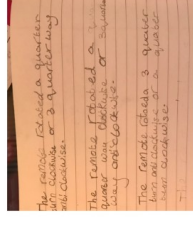 The remote rotated a quarter
turn clockwise or 3 quarter way
anti clockwise.
The remote rotated a
quarter way clockwise or 3 quarter
way anticlockwise.
The remote rotated a 3 quarter
turn anticlockwise or a quarter
turn clockwise.